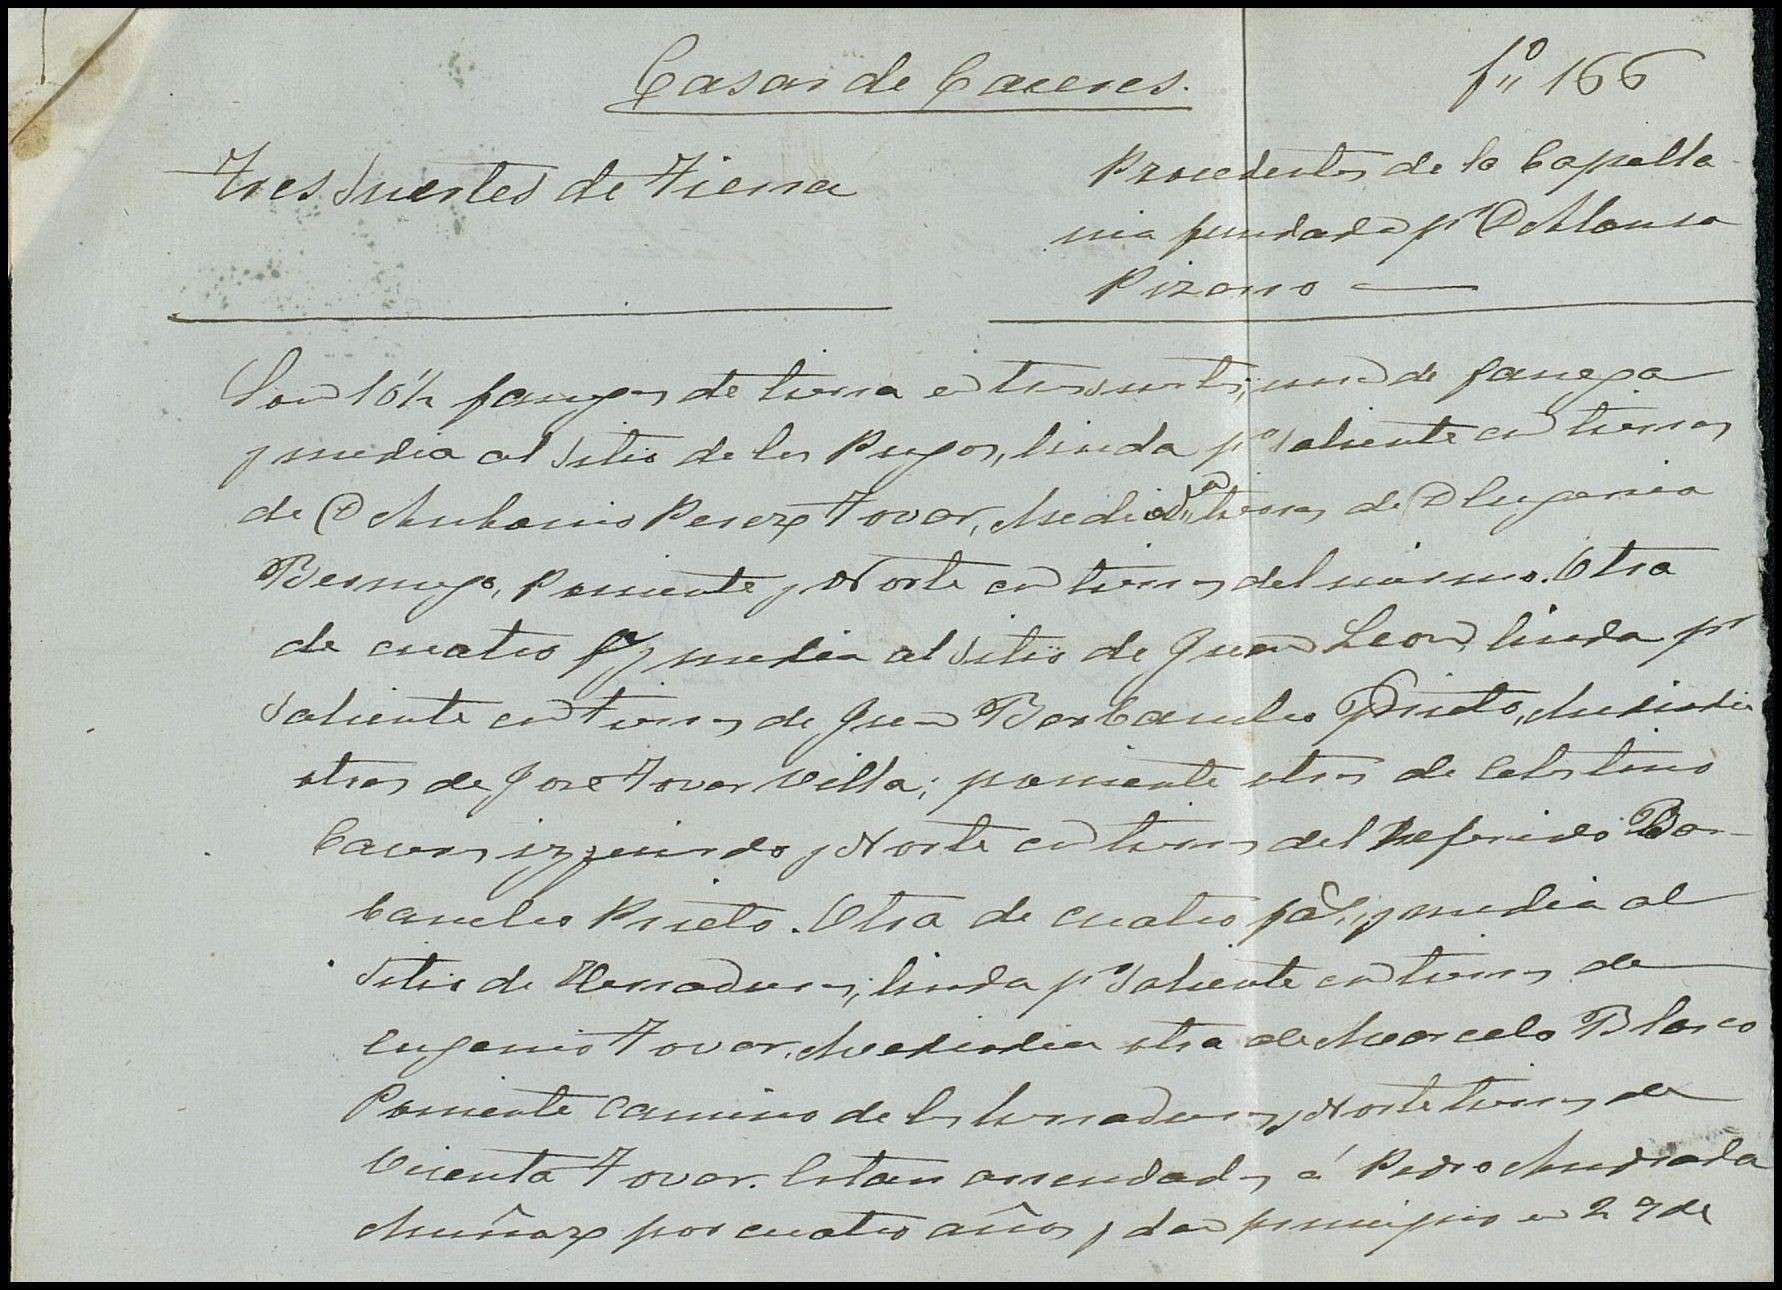 Casar de Caceres.
fº 166
Tres Suertes de Tierra
Procedentes de la Capella
nia fundada pr D Alonso
Pizarro
Son 10½ fanegas de tierra en tres suertes, una de fanega
y media al sitio de los Pugos, linda pr saliente con tierras
de D Antonio Perez Tovar, Mediodia tierras de D Eugenia
Bermejo, Poniente y Norte con tierras del mismo. Otra
de cuatro fs y media al sitio de Juan Leon, linda pr
saliente con tierras de Juan Barbancho Prieto, Mediodia
otras de Jose Tovar Villa; poniente otras de Celestino
y Norte con tierras del Referido Bar-
bancho Prieto. Otra de cuatro fas y media al
sitio de Herraduras, linda pr Saliente con tierras de
Eugenio Tovar, Mediodia otra de Marcelo Blasco
Poniente camino de las herraduras y Norte tierras de
Vicenta Tovar. Estan arrendadas á Pedro Andrada
por cuatro años y dan principio en 29 de